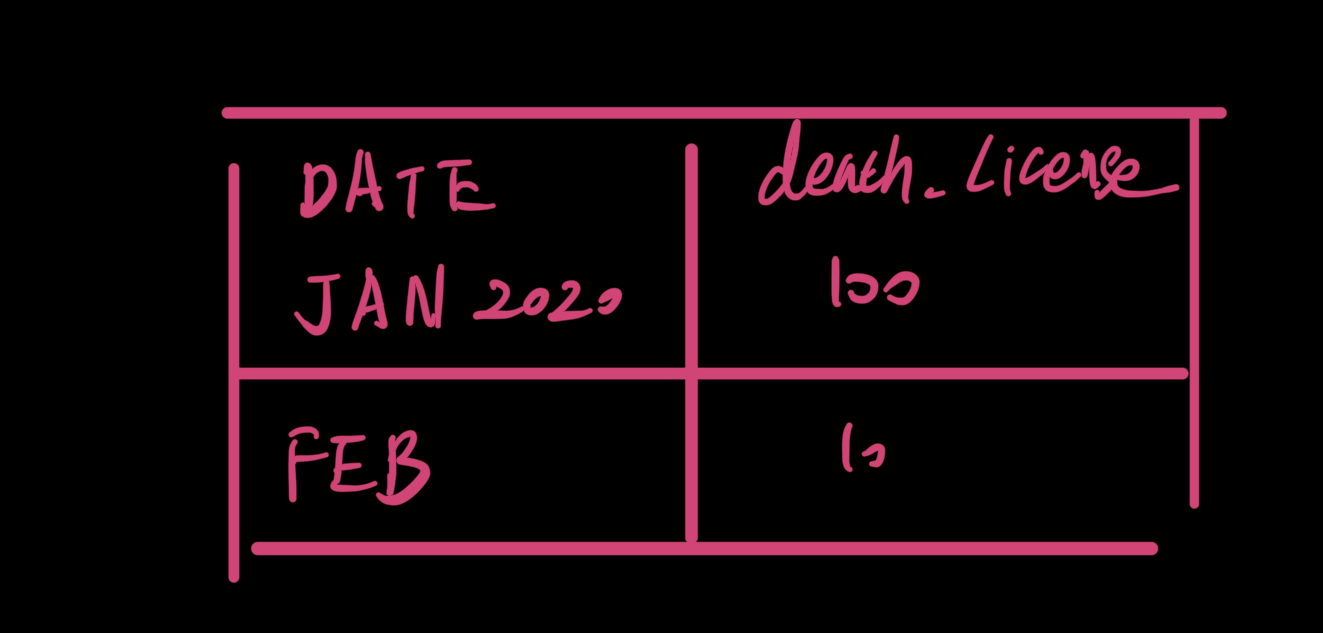 DATE death_License
JAN 2020 100
FEB 10